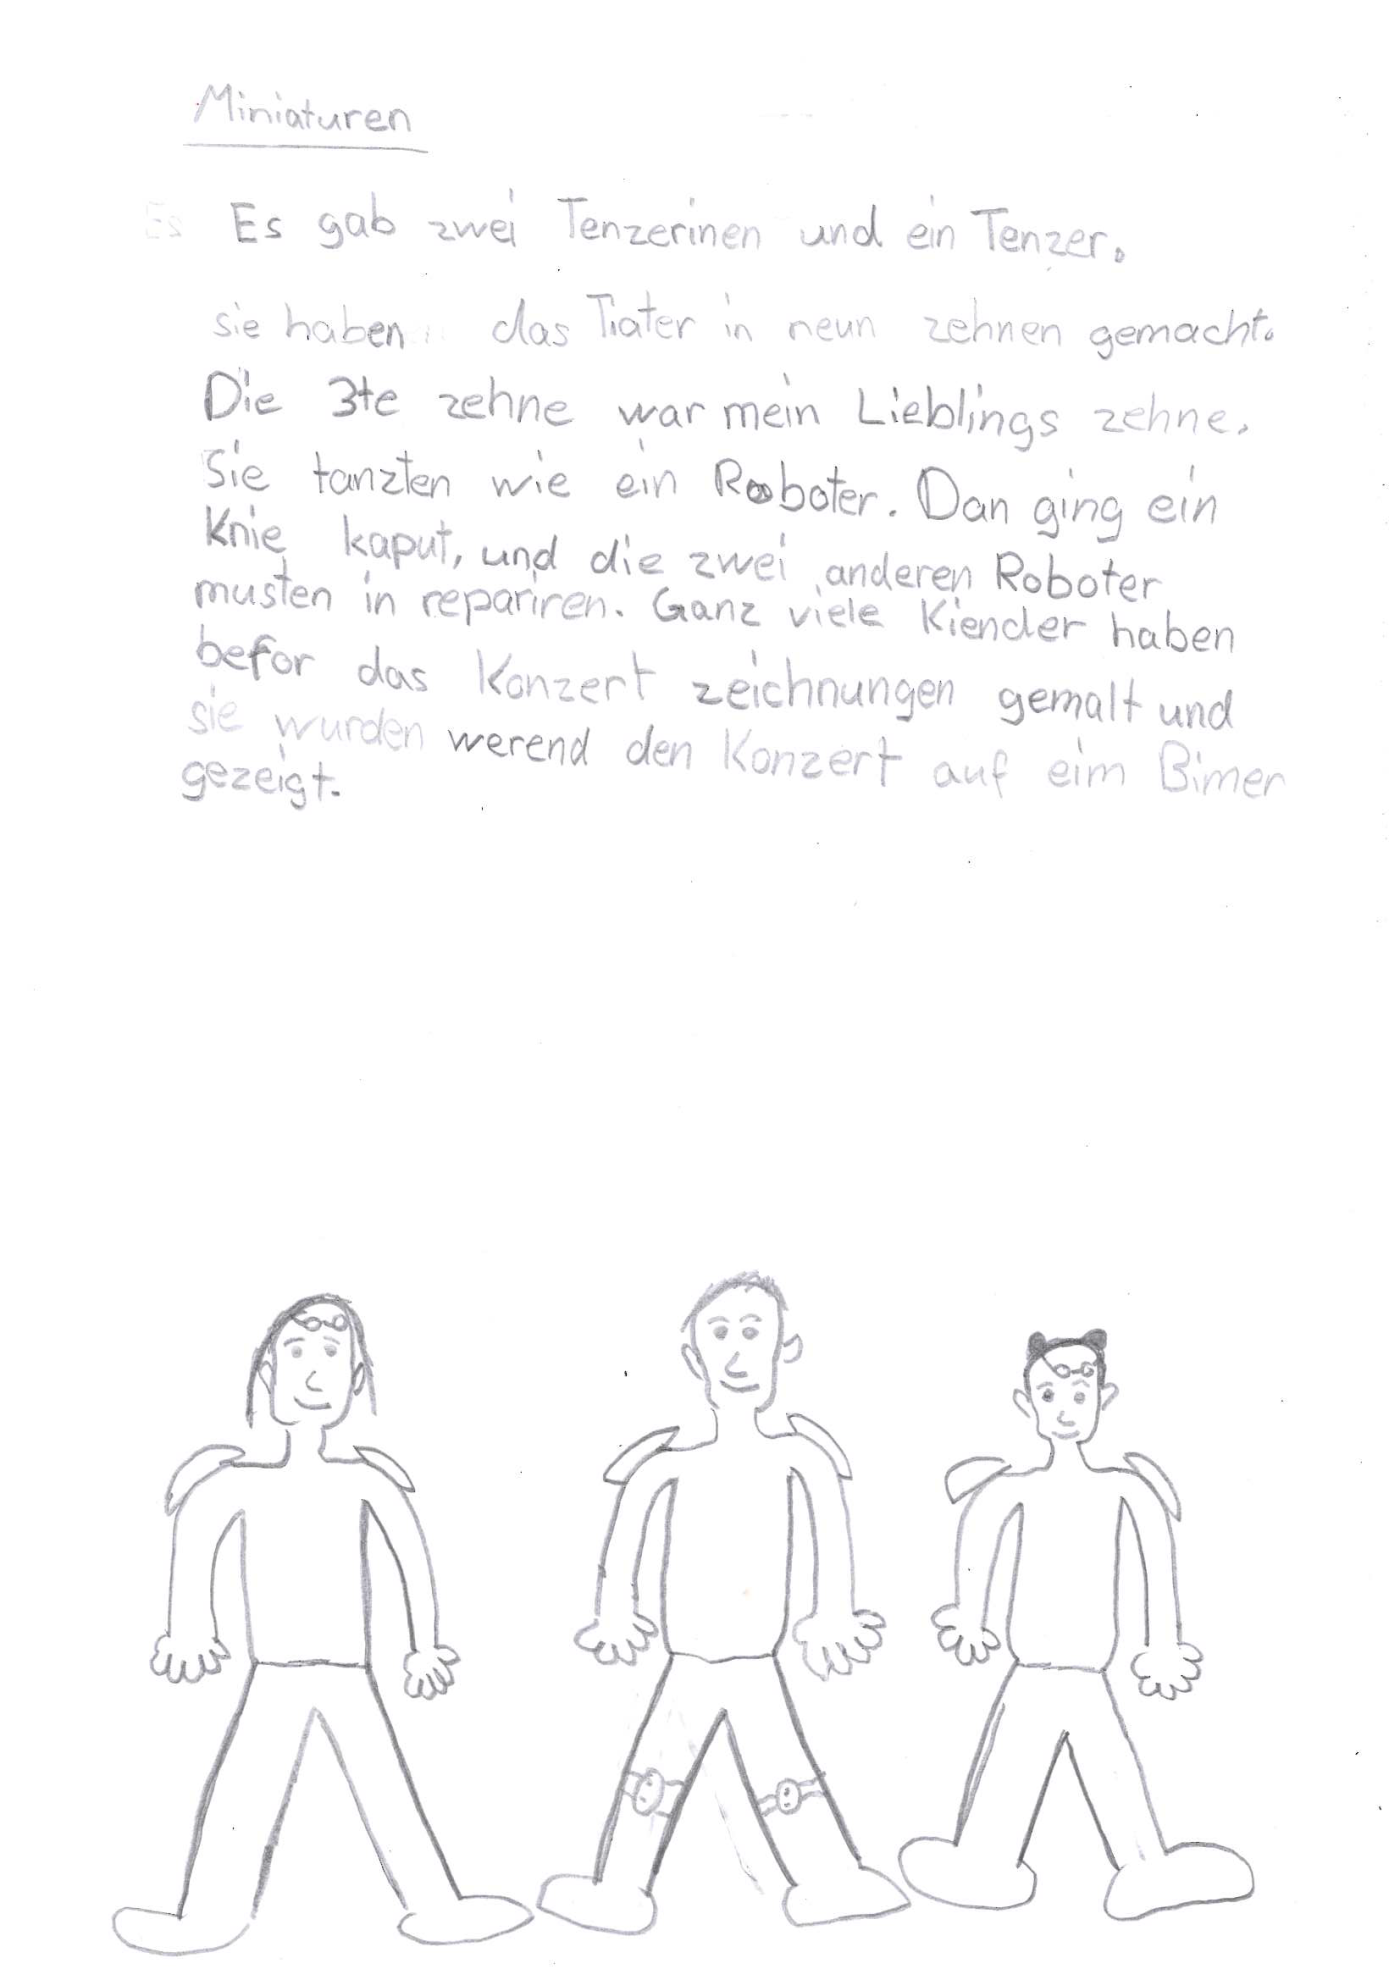 Miniaturen
Es Es gab zwei Tenzerinen und ein Tenzer.
sie haben das Tiater in neun zehnen gemacht.
Die 3te zehne war mein Lieblings zehne.
Sie tanzten wie ein Roboter. Dan ging ein
Knie kaput, und die zwei anderen Roboter
musten in repariren. Ganz viele Kiender haben
befor das Konzert zeichnungen gemalt und
sie wurden werend den Konzert auf eim Bimer
gezeigt.